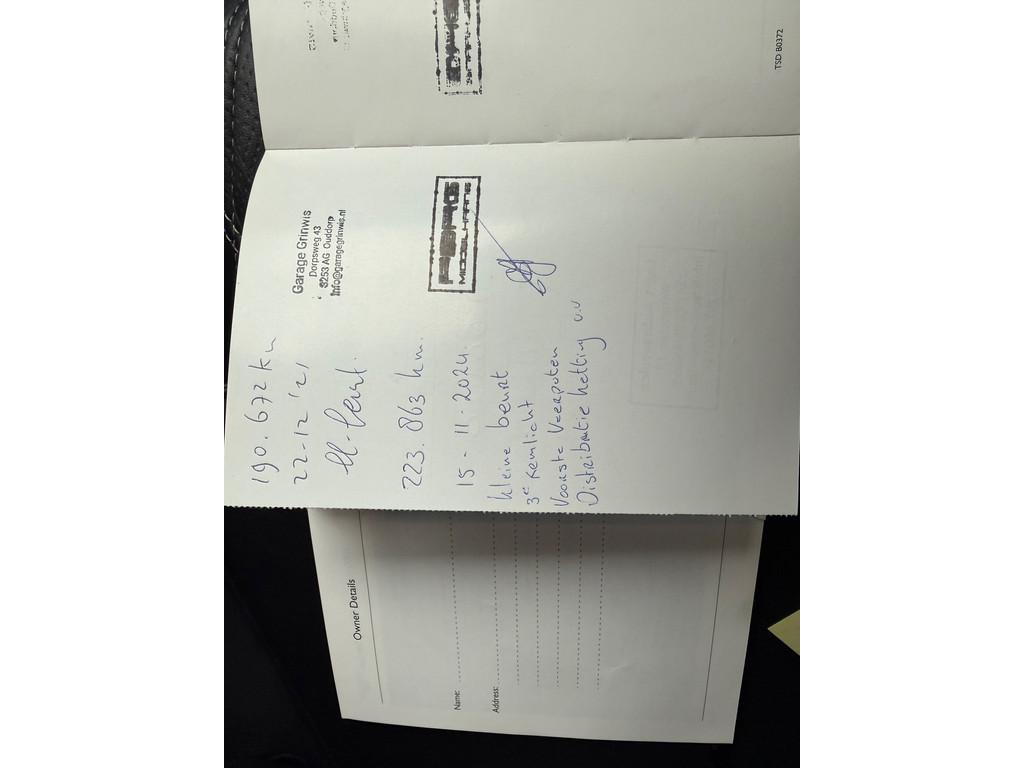 190.672 km
22-12 '21
Garage Grinwis
Dorpsweg 43
3253 AG Ouddorp
Info@garagegrinwis.nl
223.863 km.
15-11-2024.
Kleine beurt
3e remlicht
Voorste Veerpoten
Distributie ketting v.v
MIDDELHARNIS
TSD B0372
Owner Details
Name:
Address: